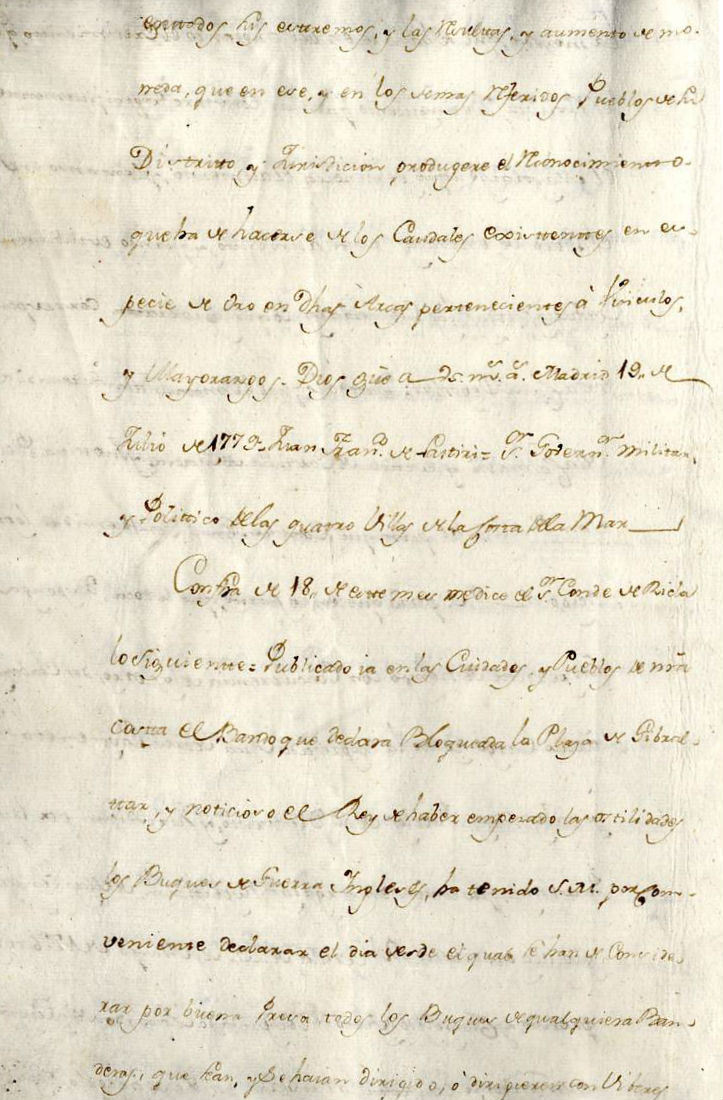 en todos sus extremos, y las resultas, y aumento de mo-
neda, que en ese, y en los demas referidos Pueblos de su
Distrito, y Jurisdicion produgere el reconocimiento
que ha de hacerse de los Caudales existentes en es-
pecie de oro en dhas Arcas pertenecientes à Vinculos,
y Mayorazgos. Dios gûe a Vs. ms. as. Madrid 19. de
Julio de 1779= Juan Franco. de Lastiri= Sor. Governor. Militar,
y Politico de las quatro Villas de la Costa de la Mar
Con fha de 18. de este mes me dice el Sor. Conde de Ricla
lo siguiente= Publicado ia en las Ciudades, y Pueblos de nrã
costa el Bando que declara Bloqueada la Plaza de Gibral-
tar, y noticioso el Rey de haber empezado las ostilidades
los Buques de Guerra Ingleses, ha tenido S.M. por com-
veniente declarar el dia desde el qual se han de Conside-
rar por buena Presa todos los Buques de qualquiera Ban-
deras, que sean, y se haian dirigido, ò dirigieren con Viberes